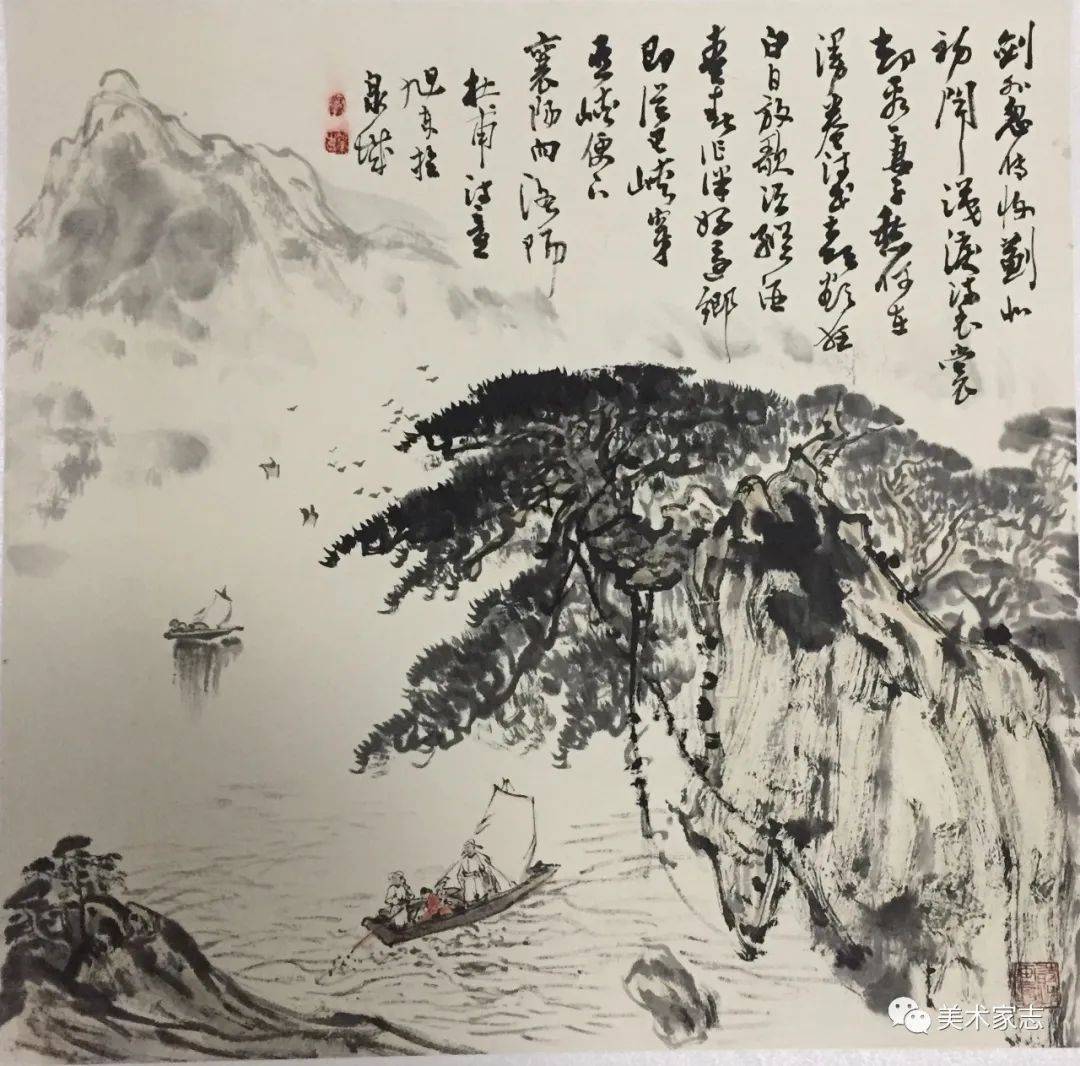 劍外忽传收蓟北
初闻涕淚满衣裳
却看妻子愁何在
漫卷诗书喜欲狂
白日放歌须纵酒
青春作伴好還鄉
即從巴峡穿
巫峡便下
襄阳向洛阳
杜甫诗意
旭东於
泉城
美术家志